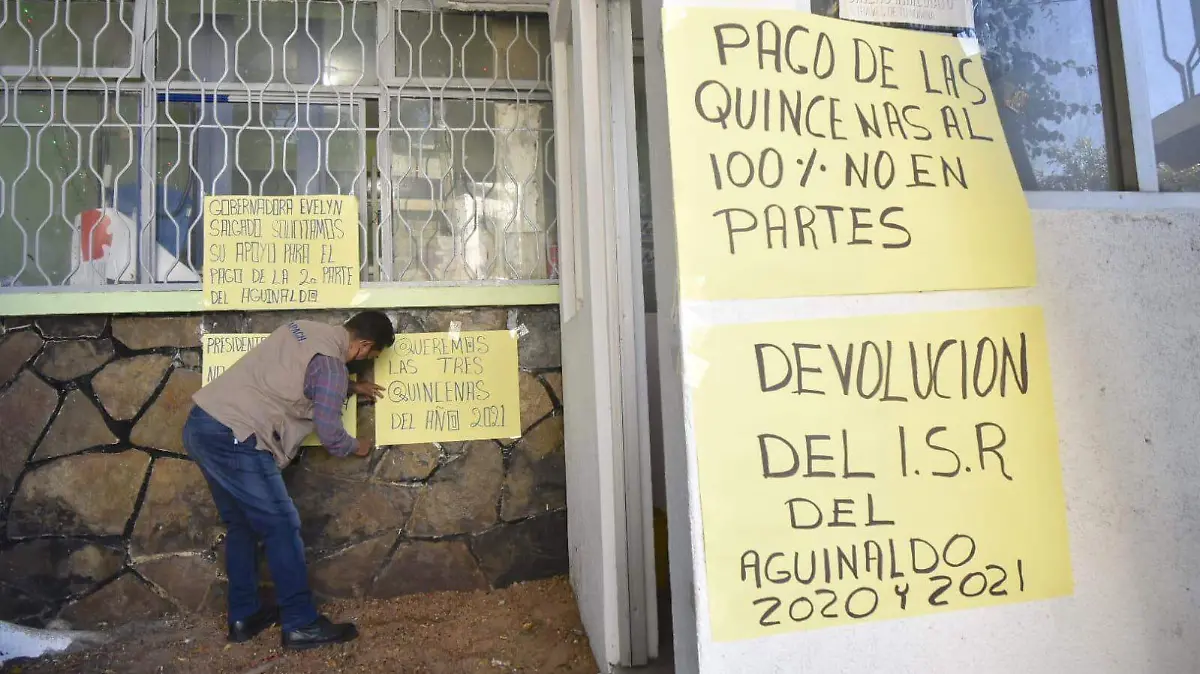 GOBERNADORA EVELYN
SALGADO SOLICITAMOS
SU APOYO PARA EL
PAGO DE LA 2a PARTE
DEL AGUINALDO
PRESIDENT
QUEREMOS
LAS TRES
QUINCENAS
DEL AÑO 2021
CAPACH
PAGO DE LAS
QUINCENAS AL
100% NO EN
PARTES
DEVOLUCION
DEL I.S.R
DEL
AGUINALDO
2020 Y 2021